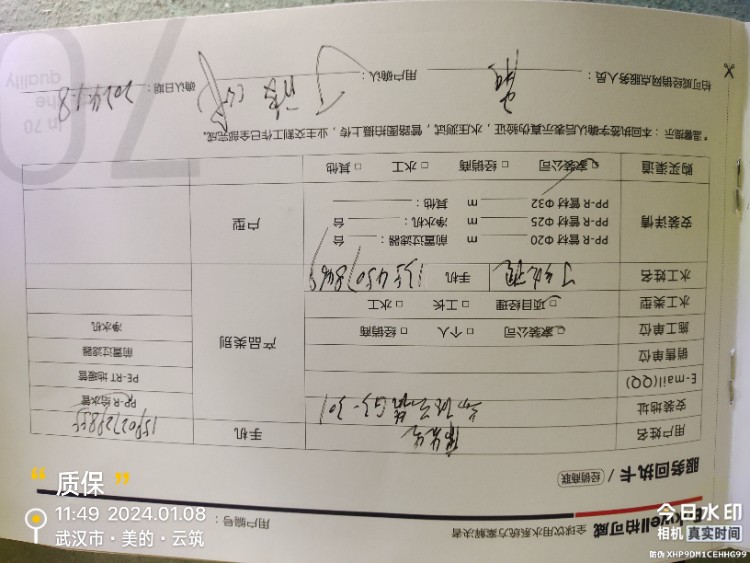 kywell柏可威 全球饮用水系统方案解决者 用户编号：
服务回执卡 / 经销商联
用户姓名 手机
安装地址 G3-301 PP-R 给水管
E-mail(QQ) PE-RT 地暖管
销售单位 前置过滤器
施工单位 家装公司 □ 个人 □ 经销商 产品类别 净水机
水工类型 项目经理 □ 工长 □ 水工
水工姓名 手机
安装详情 PP-R 管材 Φ20 m 前置过滤器： 台 户型
PP-R 管材 Φ25 m 净水机： 台
PP-R 管材 Φ32 m 其他：
购买渠道 家装公司 □ 经销商 □ 水工 □ 其他
*温馨提示：本回执签字确认后表示真伪验证，水压测试，管路图拍摄上传，业主交割工作已全部完成。
柏可威经销网点服务人员： 用户确认： 确认日期：2024.1.8
70
In 70
the
quality
“质保”
11:49 2024.01.08
武汉市·美的·云筑
今日水印
相机 真实时间
防伪 XHP9DM1CEHHG99